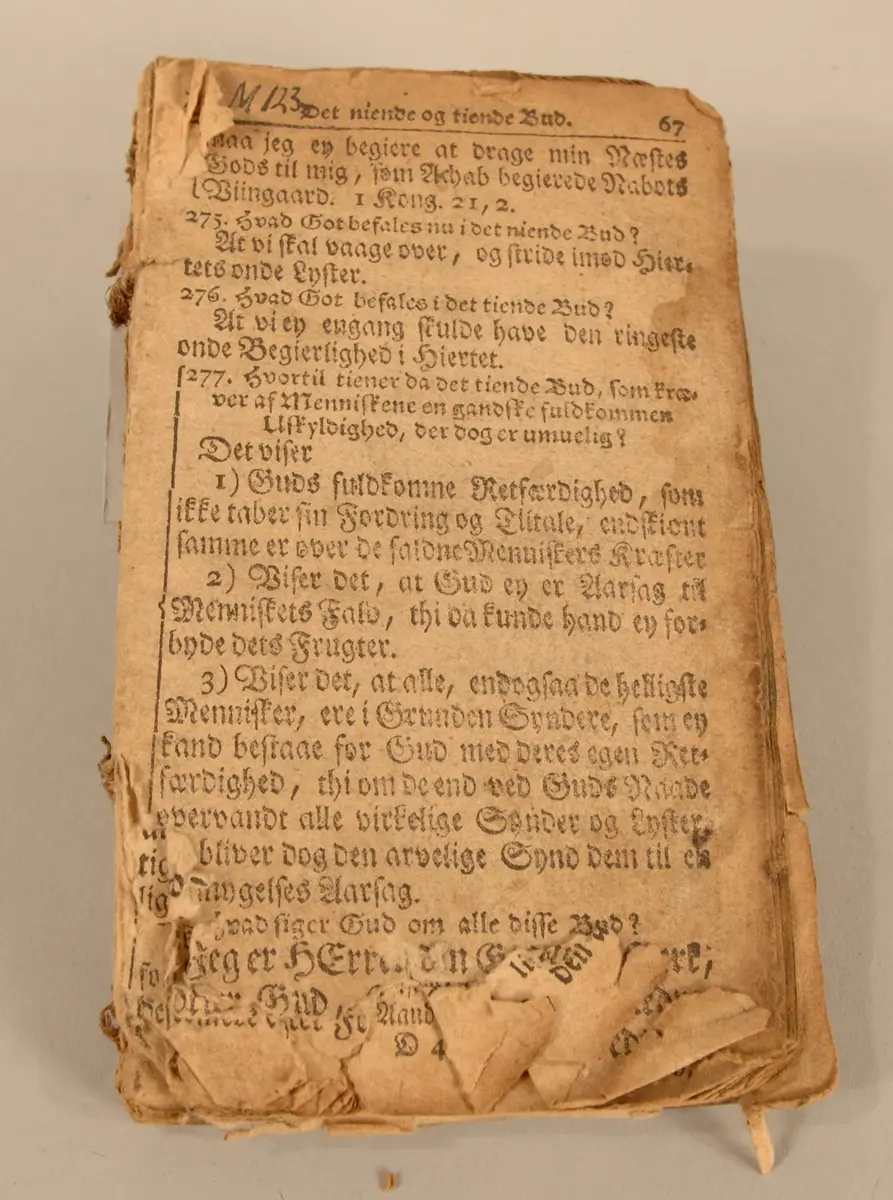 M 123
Det niende og tiende Bud. 67
maa jeg ey begiere at drage min Næstes
Gods til mig, som Achab begierede Nabots
Viingaard. 1 Kong. 21, 2.
275. Hvad Got befales nu i det niende Bud?
At vi skal vaage over, og stride imod Hier-
tets onde Lyster.
276. Hvad Got befales i det tiende Bud?
At vi ey engang skulde have den ringeste
onde Begierlighed i Hiertet.
277. Hvortil tiener da det tiende Bud, som kræ-
ver af Menniskene en gandske fuldkommen
Uskyldighed, der dog er umuelig?
Det viser
1) Guds fuldkomne Retfærdighed, som
ikke taber sin Fordring og Tiltale, endskiønt
samme er over de faldne Menniskers Kræfter
2) Viser det, at Gud ey er Aarsag til
Menniskets Fald, thi da kunde hand ey for-
byde dets Frugter.
3) Viser det, at alle, endogsaa de helligste
Mennisker, ere i Grunden Syndere, som ey
kand bestaae for Gud med deres egen Ret-
færdighed, thi om de end ved Guds Naade
overvandt alle virkelige Synder og Lyster,
bliver dog den arvelige Synd dem til en
Aarsag.
Hvad siger Gud om alle disse Bud?
Jeg er
Gud,
Aand
D 4